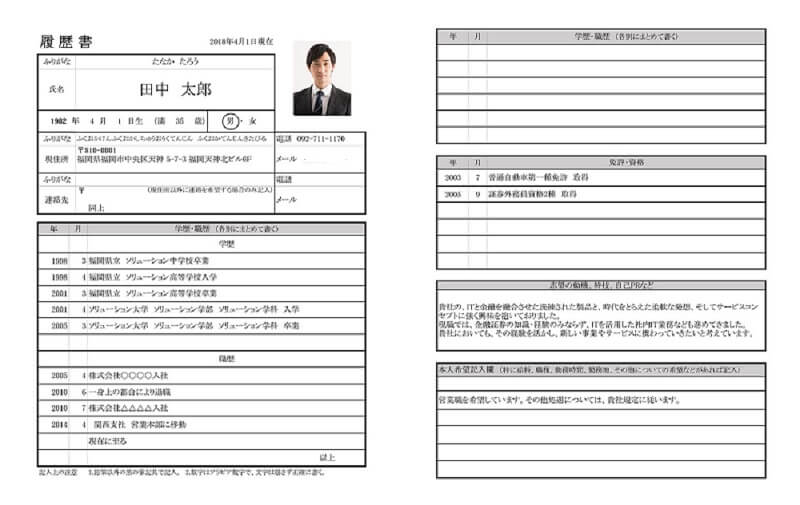 履歴書
2018年4月1日現在
ふりがな たなか たろう
氏名 田中 太郎
1982 年 4 月 1 日生 (満 35 歳) 男・女
ふりがな 電話 092-711-1170
現住所 〒810-0001
福岡県福岡市中央区天神 5-7-3 福岡天神北ビル6F
メール
ふりがな 電話
連絡先 〒 (現住所以外に連絡を希望する場合のみ記入)
同上
メール
年 月 学歴・職歴 (各別にまとめて書く)
学歴
1998 3 福岡県立 ソリューション中学校卒業
1998 4 福岡県立 ソリューション高等学校入学
2001 3 福岡県立 ソリューション高等学校卒業
2001 4 ソリューション大学 ソリューション学部 ソリューション学科 入学
2005 3 ソリューション大学 ソリューション学部 ソリューション学科 卒業
職歴
2005 4 株式会社〇〇〇〇入社
2010 6 一身上の都合により退職
2010 7 株式会社△△△△入社
2014 4 関西支社 営業本部に移動
現在に至る
以上
記入上の注意 1.鉛筆以外の黒の筆記具で記入。 2.数字はアラビア数字で、文字は崩さず正確に書く。
年 月 学歴・職歴 (各別にまとめて書く)
年 月 免許・資格
2003 7 普通自動車第一種免許 取得
2005 9 証券外務員資格2種 取得
志望の動機、特技、自己PRなど
貴社の、ITと金融を融合させた洗練された製品と、時代をとらえた柔軟な発想、そしてサービスコン
セプトに強く興味を抱いておりました。
現職では、金融証券の知識・経験のみならず、ITを活用した社内IT業務なども進めてきました。
貴社においても、その経験を活かし、新しい事業やサービスに携わっていきたいと考えています。
本人希望記入欄 (特に給料、職種、勤務時間、勤務地、その他についての希望などがあれば記入)
営業職を希望しています。その他処遇については、貴社規定に従います。